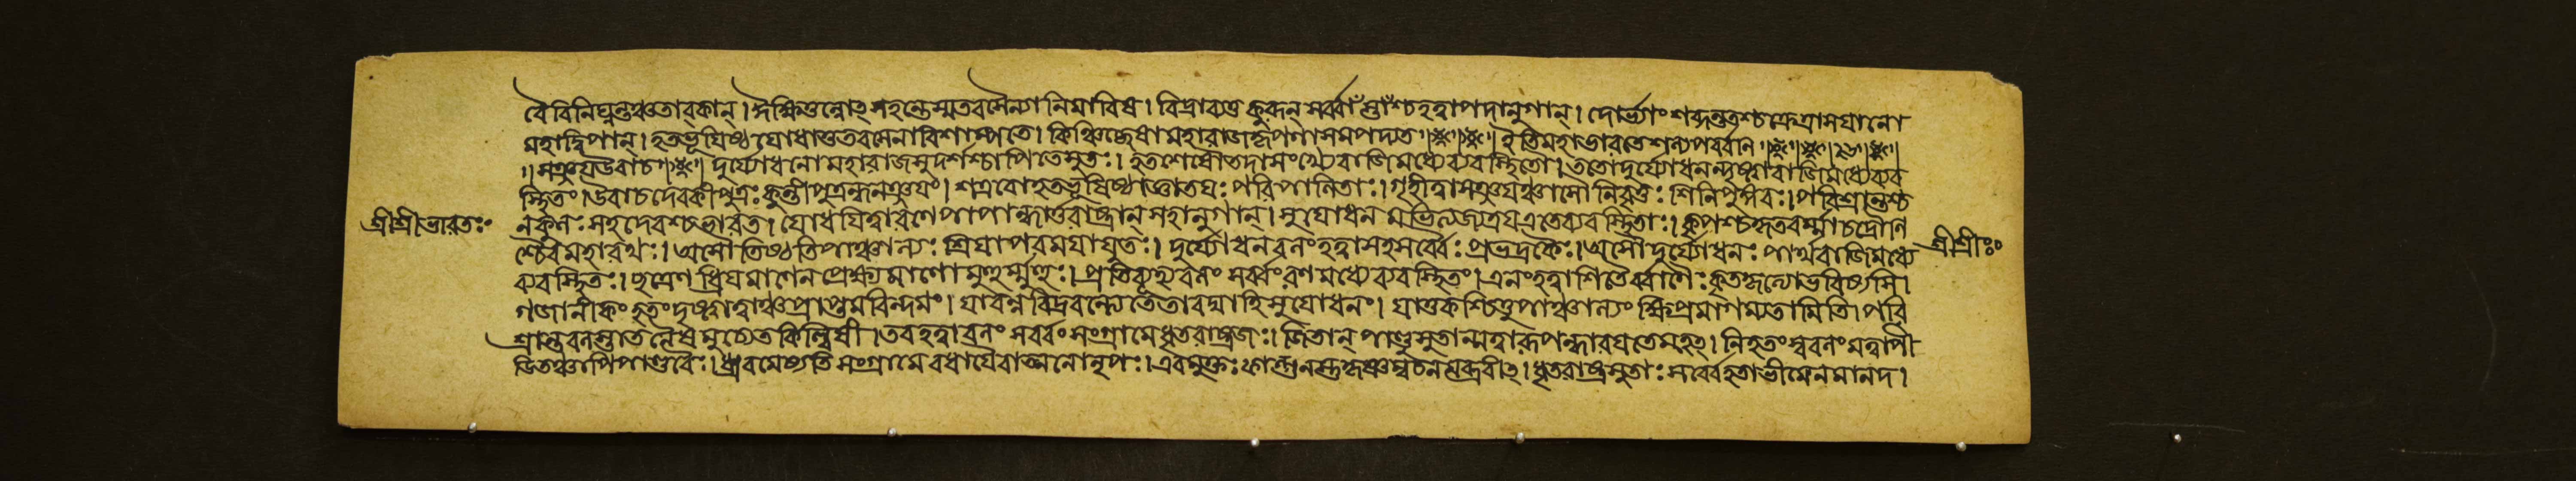 বৈবিনিঘ্নন্তঞ্চতাবকান্। ঈক্ষিতুন্নোৎসহন্তেস্মতবসৈন্যানিমাবিষ। বিদ্রাব্যতু কুরূন্ সর্ব্বাঁস্তাঁশ্চহত্বাপদানুগান্। দোর্ভ্যাং শব্দন্ততশ্চক্রেত্রাসযানো
মহাদ্বিপান্। হতভূযিষ্ঠযোধাতুতবসেনাবিশাম্পতে। কিঞ্চিচ্ছেষামহারাজকৃপণাসমপদ্যত ইতিমহাভারতেশল্যপর্ব্বনি ২৬
সঞ্জযউবাচ দুর্য্যোধনোমহারাজসুদর্শশ্চাপিতেসুতঃ। হতশেষৌতদাসংখ্যেবাজিমধ্যেব্যবস্থিতৌ। ততোদুর্য্যোধনন্দৃষ্ট্বাবাজিমধ্যেব্যব
স্থিতং। উবাচদেবকীপুত্রঃ কুন্তীপুত্রন্ধনঞ্জযং। শত্রবোহতভূযিষ্ঠাজ্ঞাতযঃ পরিপালিতাঃ। গৃহীত্বাসঞ্জযঞ্চাসৌ নিবৃত্তঃ শিনিপুঙ্গবঃ। পরিশ্রান্তশ্চ
শ্রীশ্রীভারতঃ
নকুলঃ সহদেবশ্চভারত। যোধযিত্বারণেপাপান্ধার্ত্তরাষ্ট্রান্ সহানুগান্। সুযোধন মভিত্যজ্যত্রযএতেব্যবস্থিতাঃ। কৃপশ্চকৃতবর্ম্মাচদ্রৌণি
শ্চৈবমহারথঃ। অসৌতিষ্ঠতিপাঞ্চাল্যঃ শ্রিযাপরমযাযুতঃ। দুর্য্যোধনবলংহত্বাসহসর্ব্বৈঃ প্রভদ্রকৈঃ। অসৌদুর্য্যোধনঃ পার্থবাজিমধ্যে
শ্রীশ্রীঃ
ব্যবস্থিতঃ। ছত্রেণ ধ্রিযমাণেন প্রেক্ষ্যমাণোমুহুর্ম্মুহুঃ। প্রতিব্যূহ্যবলং সর্ব্বংরণমধ্যেব্যবস্থিতং। এনংহত্বাশিতৈর্ব্বাণৈঃ কৃতকৃত্যোভবিষ্যসি।
গজানীকংহতংদৃষ্ট্বাত্বাঞ্চপ্রাপ্তমরিন্দমং। যাবন্নবিদ্রবন্ত্যেতেতাবদ্যাহিসুযোধনং। যাতুকশ্চিত্তুপাঞ্চাল্যং ক্ষিপ্রমাগম্যতামিতি। পরি
শ্রান্তবলস্তাতনৈষমুচ্যেতকিল্বিষী। তবহত্বাবলং সর্ব্বংসংগ্রামেধৃতরাষ্ট্রজঃ। জিতান্ পাণ্ডুসুতান্মত্বারূপন্ধারযতেমহৎ। নিহতংস্ববলংমত্বাপী
ডিতঞ্চাপিপাণ্ডবৈঃ। ধ্রুবমেষ্যতিসংগ্রামেবধাযৈবাত্মনোনৃপঃ। এবমুক্তঃ ফাল্গুনস্তুকৃষ্ণম্বচনমব্রবীৎ। ধৃতরাষ্ট্রসুতাঃ সর্ব্বেহতাভীমেনমানদ।